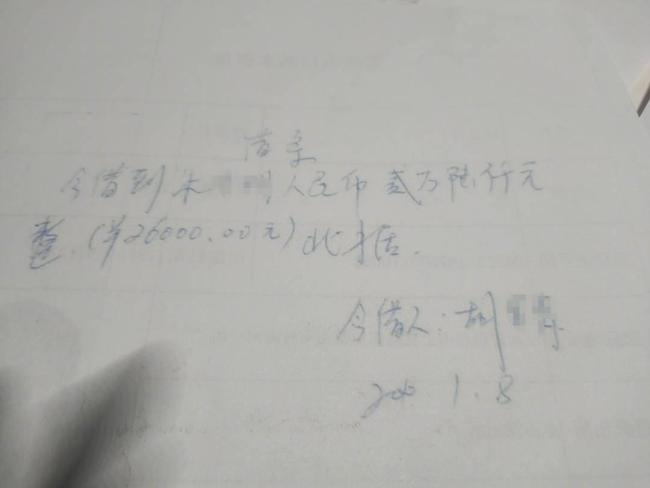 借条
今借到朱 人民币贰万陆仟元
整(¥26000.00元)此据.
今借人:胡
1.8